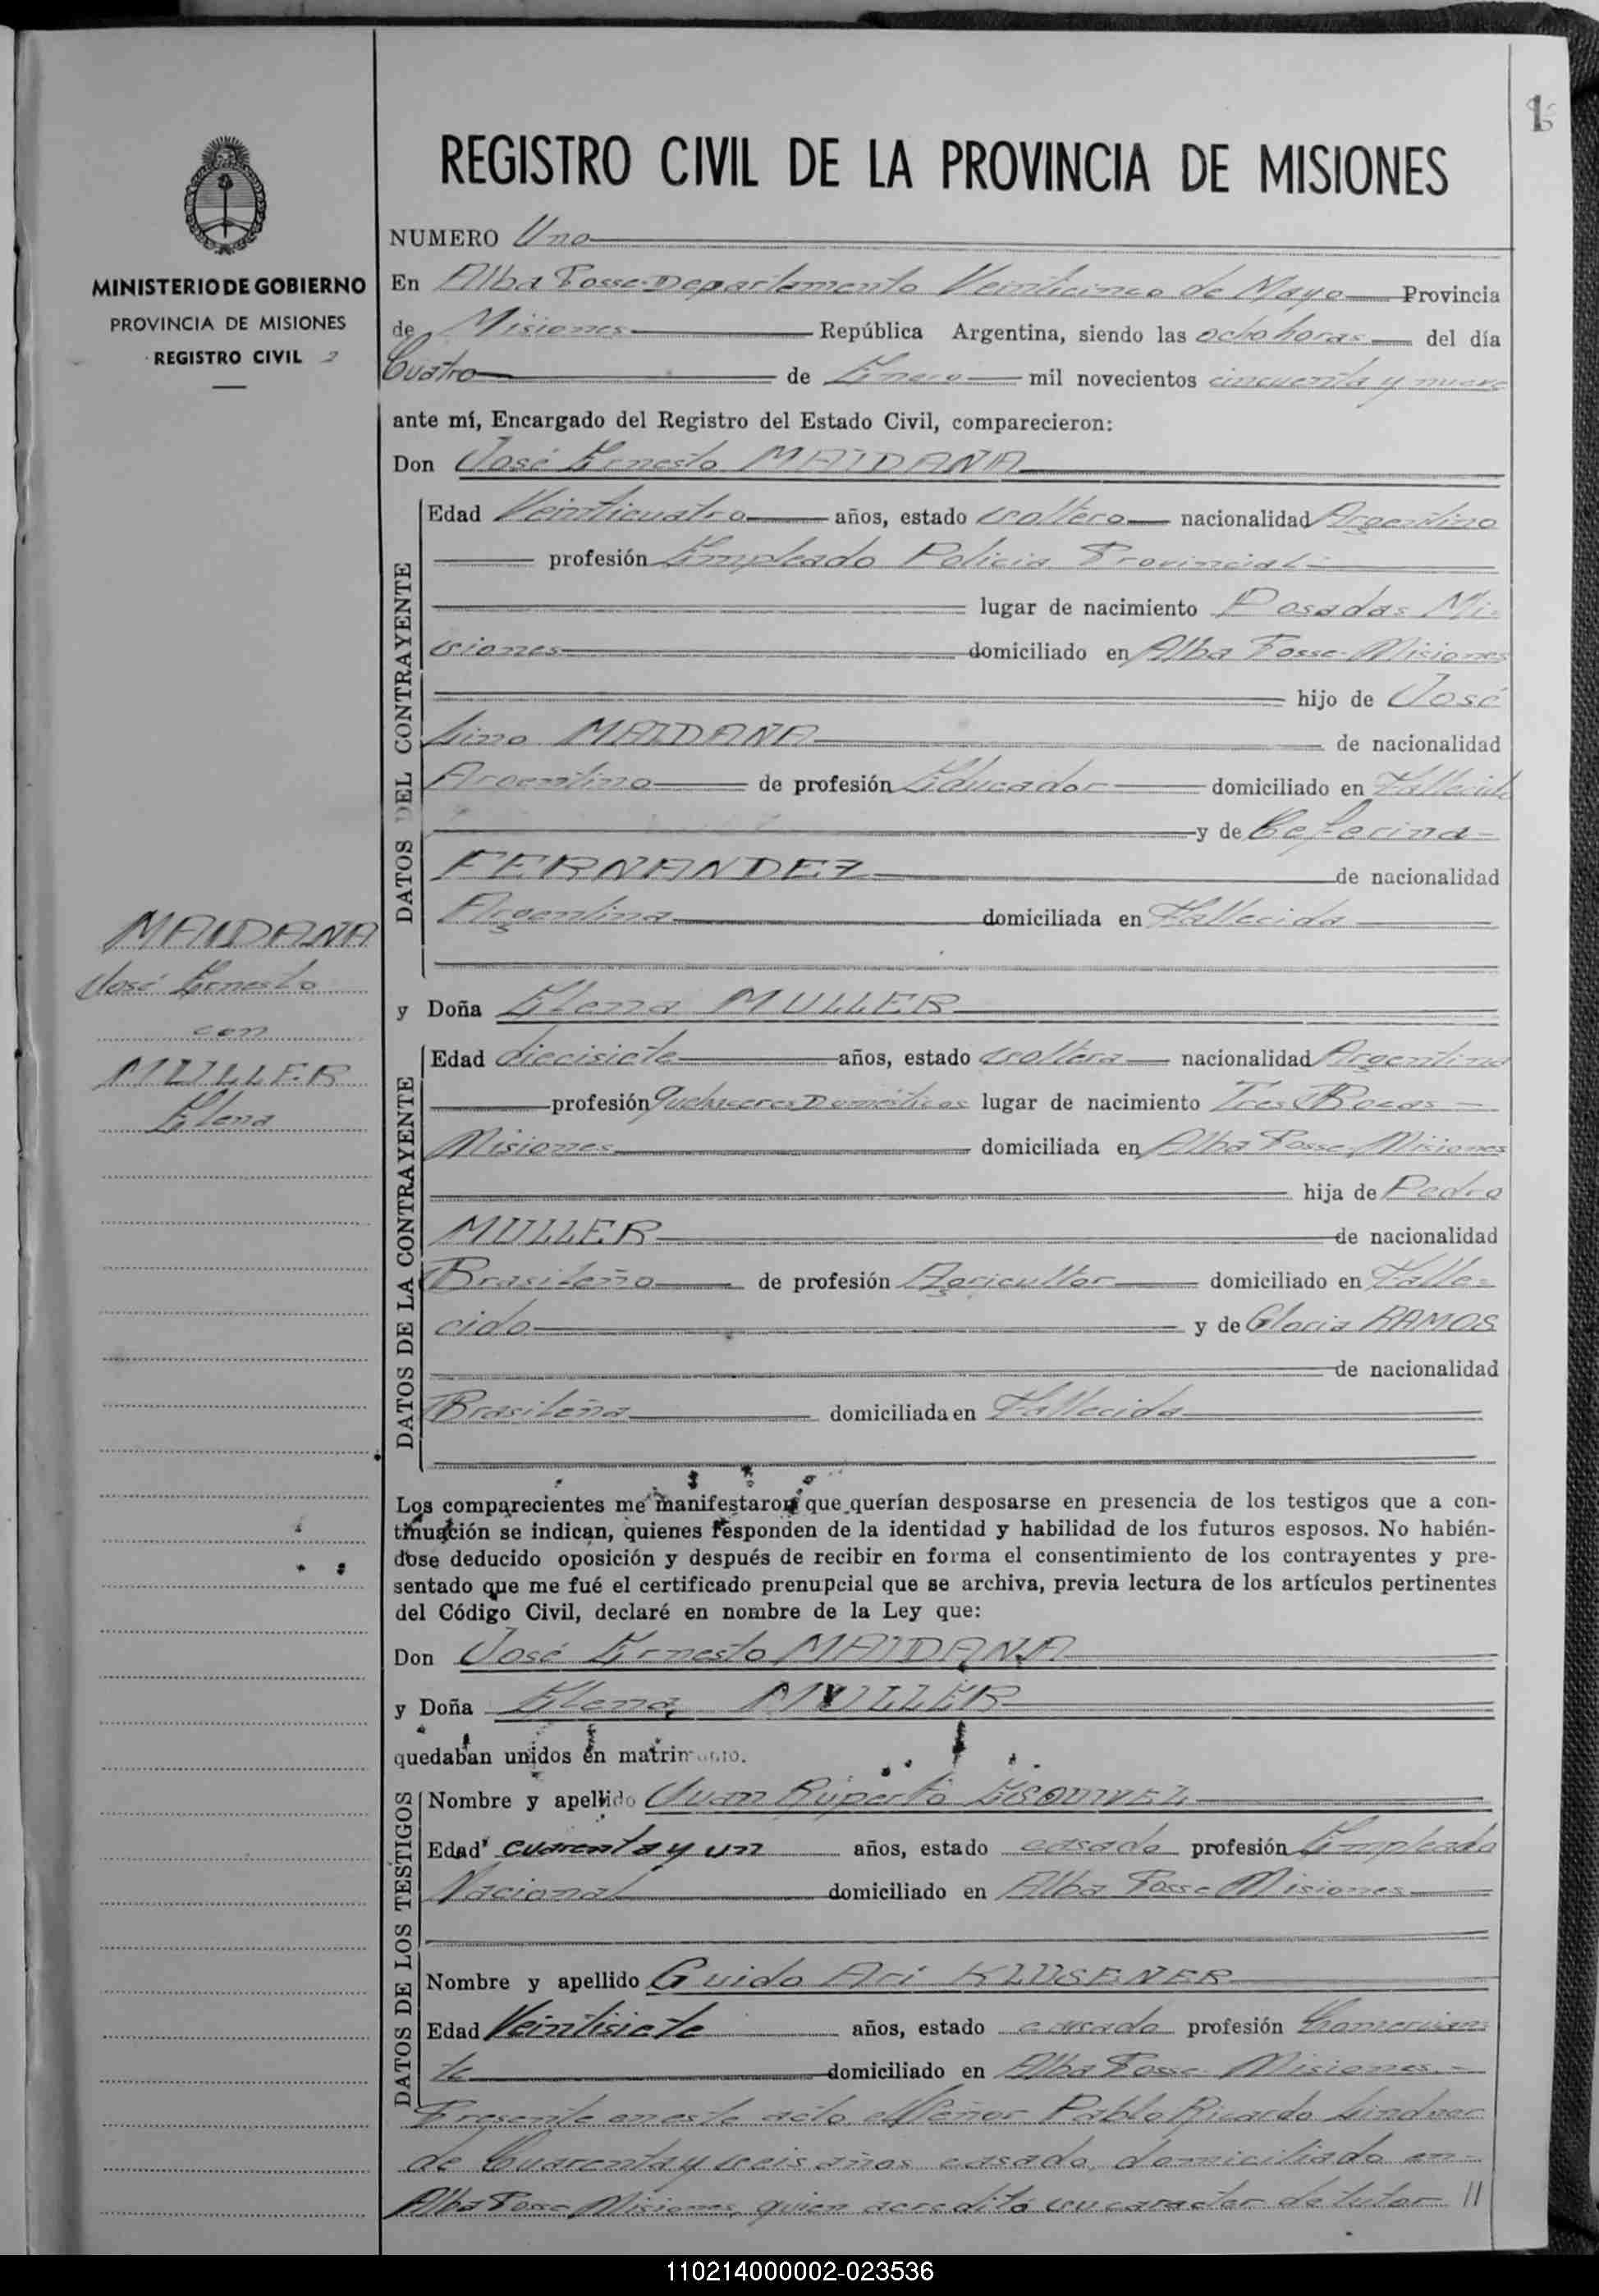 1
REGISTRO CIVIL DE LA PROVINCIA DE MISIONES
MINISTERIO DE GOBIERNO
PROVINCIA DE MISIONES
REGISTRO CIVIL
NUMERO Uno
En Alba Posse Departamento Veinticinco de Mayo Provincia
de Misiones República Argentina, siendo las ocho horas del día
Cuatro de Enero mil novecientos cincuenta y nueve
ante mí, Encargado del Registro del Estado Civil, comparecieron:
Don José Ernesto MAIDANA
DATOS DEL CONTRAYENTE
Edad Veinticuatro años, estado soltero nacionalidad Argentino
profesión Empleado Policia Provincial
lugar de nacimiento Posadas Mi-
siones domiciliado en Alba Posse-Misiones
hijo de José
Lino MAIDANA de nacionalidad
Argentino de profesión Educador domiciliado en Fallecido
y de Ceferina
FERNANDEZ de nacionalidad
Argentina domiciliada en Fallecida
MAIDANA
José Ernesto
con
MULLER
Elena
y Doña Elena MULLER
DATOS DE LA CONTRAYENTE
Edad diecisiete años, estado soltera nacionalidad Argentina
profesión Quehaceres Domésticos lugar de nacimiento Tres Bocas
Misiones domiciliada en Alba Posse, Misiones
hija de Pedro
MULLER de nacionalidad
Brasileño de profesión Agricultor domiciliado en Falle-
cido y de Gloria RAMOS
de nacionalidad
Brasileña domiciliada en Fallecida
Los comparecientes me manifestaron que querían desposarse en presencia de los testigos que a con-
tinuación se indican, quienes responden de la identidad y habilidad de los futuros esposos. No habién-
dose deducido oposición y después de recibir en forma el consentimiento de los contrayentes y pre-
sentado que me fué el certificado prenupcial que se archiva, previa lectura de los artículos pertinentes
del Código Civil, declaré en nombre de la Ley que:
Don José Ernesto MAIDANA
y Doña Elena MULLER
quedaban unidos en matrimonio.
DATOS DE LOS TESTIGOS
Nombre y apellido Juan Ruperto ESQUIVEL
Edad cuarenta y un años, estado casado profesión Empleado
Nacional domiciliado en Alba Posse Misiones
Nombre y apellido Guido Ari KLUSENER
Edad Veintisiete años, estado casado profesión Comercian
te domiciliado en Alba Posse Misiones.-
Presente en este acto el Señor Pablo Ricardo Lindner
de Cuarenta y seis años casado, domiciliado en
Alba Posse Misiones, quien acreditó su caracter de tutor //
110214000002-023536